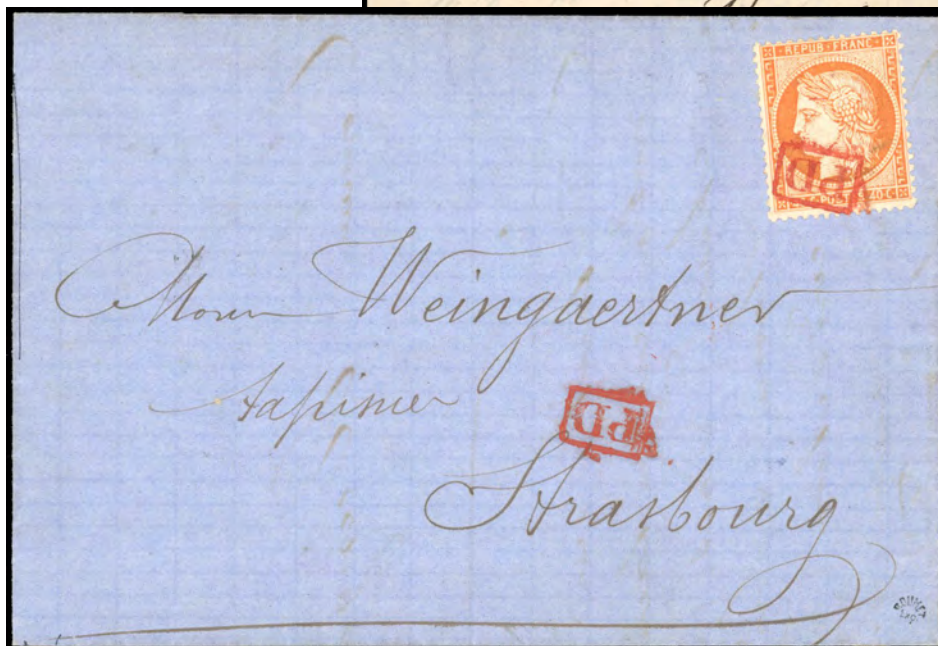 REPUB · FRANC
40 C
PD
Weingaertner
tapissier
PD
Strasbourg